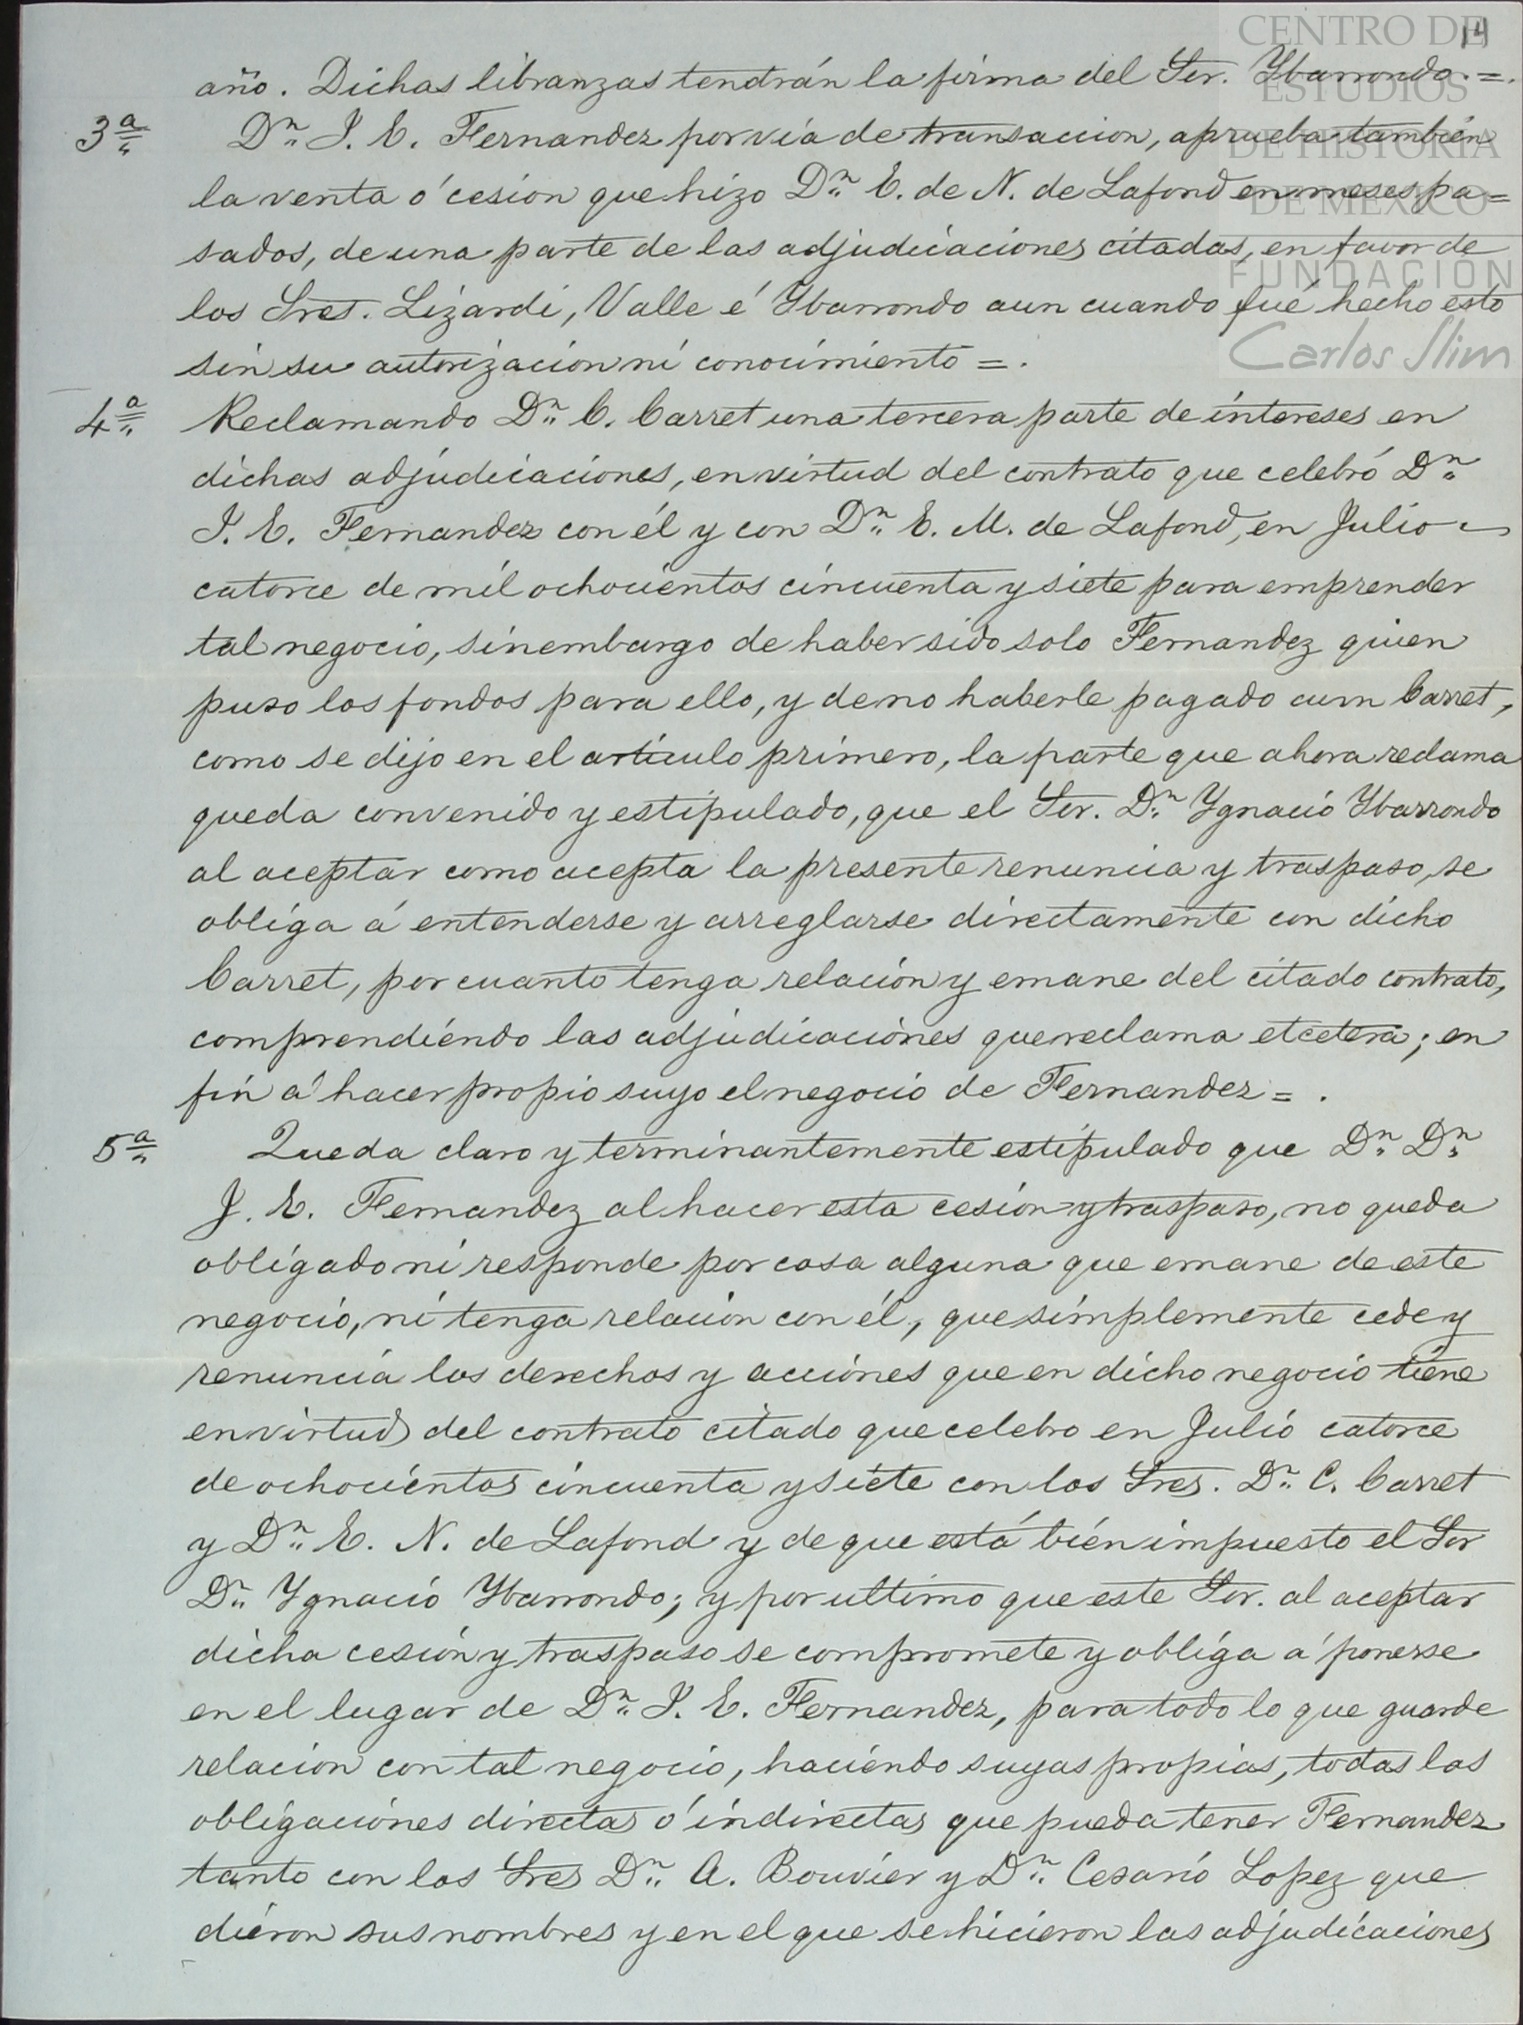 14
CENTRO DE
ESTUDIOS
DE HISTORIA
DE MEXICO
FUNDACIÓN
Carlos Slim
año. Dichas libranzas tendrán la firma del Sor. Ybarrondo. =.
3ª Dn. J. E. Fernandez por via de transaccion, aprueba tambien
la venta ó cesion que hizo Dn. E. de N. de Lafond en meses pa=
sados, de una parte de las adjudicaciones citadas, en favor de
los Sres. Lizardi, Valle é Ybarrondo aun cuando fué hecho esto
sin su autorizacion ni conocimiento =.
4ª Reclamando Dn. C. Carret una tercera parte de intereses en
dichas adjudicaciones, en virtud del contrato que celebró Dn.
J. E. Fernandez con él y con Dn. E. M. de Lafond, en Julio
catorce de mil ochocientos cincuenta y siete para emprender
tal negocio, sinembargo de haber sido solo Fernandez quien
puso los fondos para ello, y de no haberle pagado aun Carret,
como se dijo en el artículo primero, la parte que ahora reclama
queda convenido y estipulado, que el Sor. Dn. Ygnacio Ybarrondo
al aceptar como acepta la presente renuncia y traspaso, se
obliga á entenderse y arreglarse directamente con dicho
Carret, por cuanto tenga relación y emane del citado contrato,
comprendiendo las adjudicaciones que reclama etcetera; en
fin á hacer propio suyo el negocio de Fernandez = .
5ª Queda claro y terminantemente estipulado que Dn. Dn.
J. E. Fernandez al hacer esta cesion y traspaso, no queda
obligado ni responde por cosa alguna que emane de este
negocio, ni tenga relacion con él, que simplemente cede y
renuncia los derechos y acciones que en dicho negocio tiene
en virtud del contrato citado que celebro en Julio catorce
de ochocientos cincuenta y siete con los Sres. Dn. C. Carret
y Dn. E. N. de Lafond y de que está bien impuesto el Sor
Dn. Ygnacio Ybarrondo; y por ultimo que este Sor. al aceptar
dicha cesión y traspaso se compromete y obliga á ponerse
en el lugar de Dn. J. E. Fernandez, para todo lo que guarde
relacion con tal negocio, haciendo suyas propias, todas las
obligaciones directas ó indirectas que pueda tener Fernandez
tanto con los Sres Dn. A. Bouvier y Dn. Cesario Lopez que
dieron sus nombres y en el que se hicieron las adjudicaciones